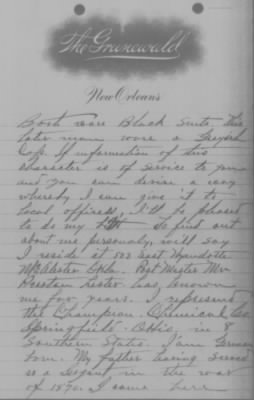 The Grunewald
New Orleans
Both wore Black Suits. This
later man wore a Greyish
Cap. If information of this
character is of service to you
and you can devise a way
whereby I can give it to
local officials, I'll be pleased
to do my bit. To find out
about me personally, will say
I reside at 503 East Wyandotte
McAlester Okla. Post Master Mr.
Hester has known
me for years. I represent
the Champion Chemical Co
Springfield Ohio, in 8
Southern States. I am German
born. My father having served
as a Sergeant in the war
of 1870. I came here